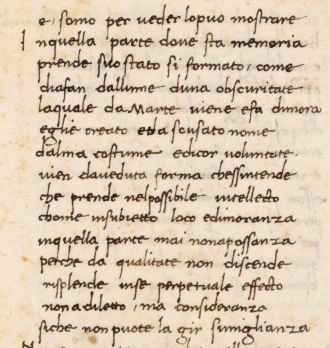 e, somo per veder lopuo mostrare
Inquella parte doue sta memoria
prende suo stato si formato, come
diafan dallume duna obscuritate
laquale da Marte viene efa dimora
eglie creato eda sensato nome
dalma costume edicor voluntate.
vien daveduta forma chessintende
che prende nelpossibile intellecto
chome insubiecto loco edimoranza
inquella parte mai nonapossanza
perche da qualitate non discende
risplende inse perpetuale effecto
non a diletto, ma consideranza
siche non puote la gir simiglianza